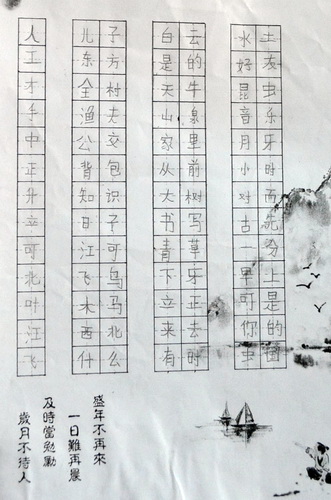 人 儿子 白云 水土
工 东方 是的 好友
才 全村 天牛 昆虫
手 渔夫 山泉 音乐
中 公交 家里 月牙
正 背包 从前 小时
升 知识 大树 对面
立 日子 书写 古
可 江可 青草 一分
北 飞鸟 下牙 早上
叶 木马 立正 可是
江 西北 来去 你的
飞 什么 有时 虫
盛年不再來
一日難再晨
及時當勉勵
歲月不待人